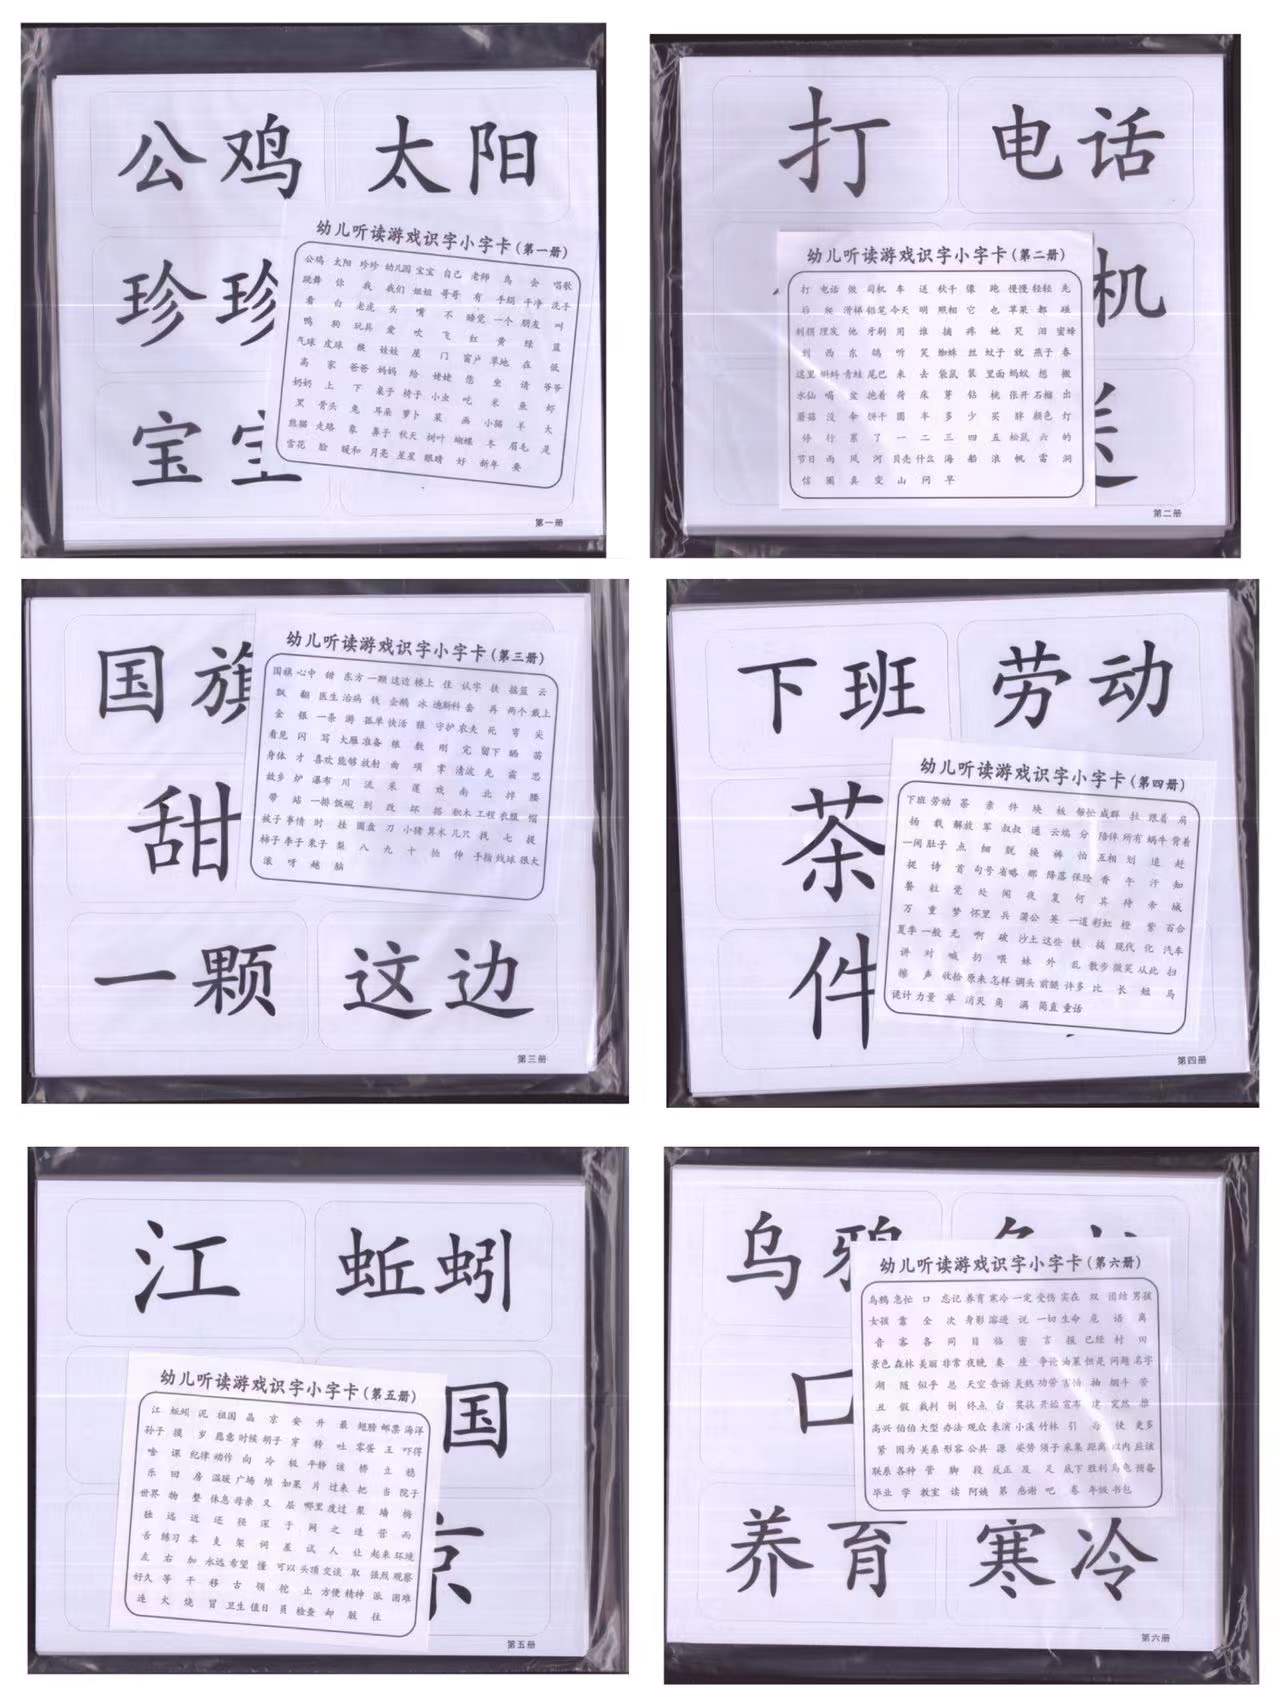 公鸡 太阳
珍珍
宝宝
幼儿听读游戏识字小字卡(第一册)
公鸡 太阳 珍珍 幼儿园 宝宝 自己 老师 鸟 会 唱歌
跳舞 你 我 我们 姐姐 哥哥 有 手绢 干净 孩子
看 白 老虎 头 嘴 不 睡觉 一个 朋友 叫
鸭 狗 玩具 爱 吹 飞 红 黄 绿 蓝
气球 皮球 猴 娃娃 屋 门 窗户 草地 在 低
高 家 爸爸 妈妈 给 姥姥 您 坐 请 爷爷
奶奶 上 下 桌子 椅子 小虫 吃 米 鱼 虾
黑 骨头 兔 耳朵 萝卜 菜 画 小猫 羊 大
熊猫 走路 象 鼻子 秋天 树叶 蝴蝶 冬 眉毛 是
雪花 脸 暖和 月亮 星星 眼睛 好 新年 要
第一册
打 电话
机
送
幼儿听读游戏识字小字卡(第二册)
打 电话 做 司机 车 送 秋千 像 跑 慢慢 轻轻 先
后 爬 滑梯 铅笔 今天 明 照相 它 也 苹果 都 碰
刺猬 理发 他 牙刷 用 谁 摘 疼 她 哭 泪 蜜蜂
到 西 东 鸽 听 笑 蜘蛛 丝 蚊子 就 燕子 春
这里 蝌蚪 青蛙 尾巴 来 去 袋鼠 装 里面 蚂蚁 想 搬
水仙 喝 盆 抱着 荷 床 芽 钻 桃 张开 石榴 出
蘑菇 没 伞 饼干 圆 半 多 少 买 胖 颜色 灯
停 行 累 了 一 二 三 四 五 松鼠 六 的
节日 雨 风 河 贝壳 什么 海 船 浪 帆 雷 洞
信 圈 真 变 山 问 早
第二册
国旗
甜
一颗 这边
幼儿听读游戏识字小字卡(第三册)
国旗 心中 甜 东方 一颗 这边 楼上 住 认字 扶 摇篮 云
飘 翻 医生 治病 钱 企鹅 冰 迪斯科 套 再 两个 戴上
金 银 一条 游 孤单 快活 狼 守护 农夫 死 弯 尖
看见 闪 写 大雁 准备 粮 数 刚 完 留下 晒 苗
身体 才 喜欢 能够 放射 曲 项 掌 清波 光 霜 思
故乡 炉 瀑布 川 流 采 莲 戏 南 北 掉 腰
带 站 一排 饭碗 别 改 坏 搭 积木 工程 衣服 帽
被子 事情 时 挂 圆盘 刀 小猪 算术 几只 找 七 提
柿子 李子 栗子 梨 八 九 十 拍 伸 手指 线球 很大
滚 呀 越 脑
第三册
下班 劳动
茶
件
幼儿听读游戏识字小字卡(第四册)
下班 劳动 茶 亲 件 块 板 帮忙 成群 拉 跟着 肩
扬 栽 解放 军 叔叔 通 云端 分 陪伴 所有 蜗牛 背着
一闻 肚子 点 细 脱 换 裤 怕 互相 划 追 赶
捉 诗 首 句号 省略 那 降落 保险 香 午 汗 知
餐 粒 觉 处 闻 夜 复 何 其 待 帝 城
万 重 梦 怀里 兵 蒲公 英 一道 彩虹 橙 紫 百合
夏季 一般 无 啊 破 沙土 这些 铁 搞 现代 化 汽车
讲 对 喊 扔 喂 妹 外 乱 散步 微笑 从此 扫
擦 声 收拾 原来 怎样 调头 前腿 许多 比 长 短 马
诡计 力量 举 消灭 角 满 简直 童话
第四册
江 蚯蚓
国
京
幼儿听读游戏识字小字卡(第五册)
江 蚯蚓 泥 祖国 晶 京 安 升 最 翅膀 邮票 海洋
孙子 摸 岁 愿意 时候 胡子 穿 转 吐 零蛋 王 吓得
啥 课 纪律 动作 向 冷 极 平静 该 桥 立 稳
乐 回 房 温暖 广场 堆 如果 片 过来 把 当 院子
世界 物 整 休息 母亲 又 层 哪里 度过 聚 墙 梅
独 远 近 还 径 深 于 网 之 造 营 而
舌 练习 本 支 架 词 差 试 人 让 起来 环境
左 右 加 永远 希望 懂 可以 头顶 交谈 取 强烈 观察
好久 等 干 移 古 领 挖 止 方便 精神 派 困难
连 火 烧 冒 卫生 值日 员 检查 却 脏 往
第五册
乌鸦
口
养育 寒冷
幼儿听读游戏识字小字卡(第六册)
乌鸦 急忙 口 忘记 养育 寒冷 一定 受伤 实在 双 团结 男孩
女孩 靠 全 次 身影 溜进 说 一切 生命 危 语 离
音 客 各 同 目 临 密 言 报 已经 村 田
景色 森林 美丽 非常 夜晚 奏 座 争论 油菜 但是 问题 名字
湖 随 似乎 总 天空 告诉 炎热 功劳 害怕 抽 烟斗 管
丑 假 裁判 倒 终点 台 奖状 开始 宣布 建 突然 推
高兴 伯伯 大型 办法 观众 表演 小溪 竹林 引 与 使 更多
紧 因为 关系 形容 公共 源 姿势 须子 采集 距离 以内 应该
联系 各种 管 脚 段 反正 及 足 底下 胜利 乌龟 预备
毕业 学 教室 读 阿姨 第 感谢 吧 卷 年级 书包
第六册